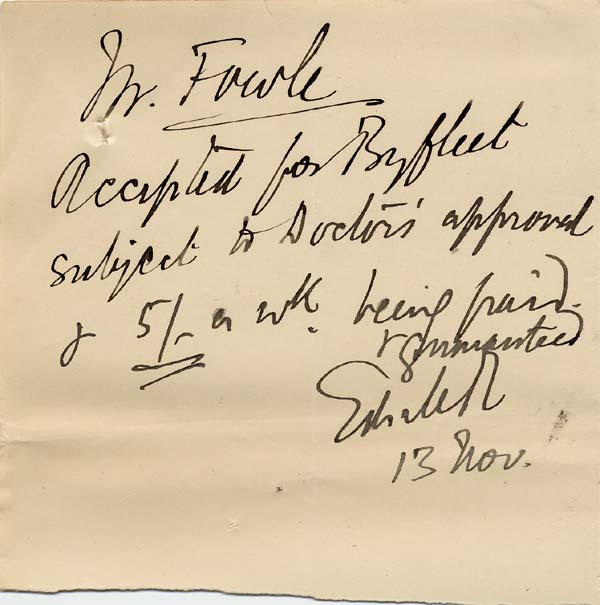 Mr. Fowle
Accepted for Byfleet
subject to Doctors' approval
& 5/- a wk. being paid.
& guaranteed
13 Nov.